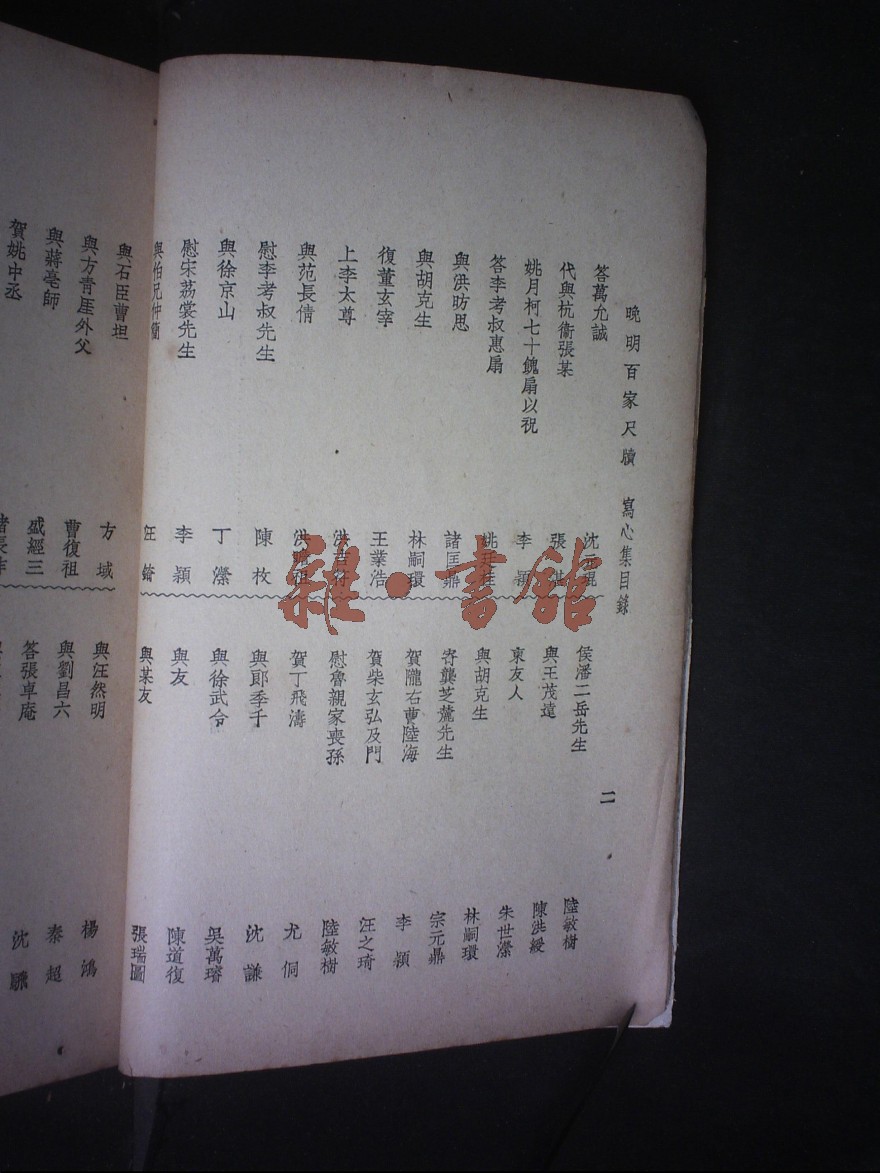 晚明百家尺牘 寫心集目錄
二
答萬允誠 沈元琨
代與杭衞張某 張
姚月柯七十餽扇以祝 李穎
答李考叔惠扇 姚廷桂
與洪昉思 諸匡鼎
與胡克生 林嗣環
復董玄宰 王業浩
上李太尊 洪吉符
與范長倩 洪 祖
慰李考叔先生 陳枚
與徐京山 丁濚
慰宋荔裳先生 李穎
與伯兄仲簡 汪
侯潘二岳先生 陸敏樹
與王茂遠 陳洪綬
柬友人 朱世濚
與胡克生 林嗣環
寄龔芝麓先生 宗元鼎
賀隴右曹陸海 李穎
賀柴玄弘及門 汪之琦
慰魯親家喪孫 陸敏樹
賀丁飛濤 尤侗
與郞季千 沈謙
與徐武令 吳萬
與友 陳道復
與某友 張瑞圖
與石臣曹坦 方域
與方青厓外父 曹復祖
與蔣亳師 盛經三
賀姚中丞 諸長祚
與汪然明 楊鴻
與劉昌六 秦超
答張卓庵 沈
雜·書館